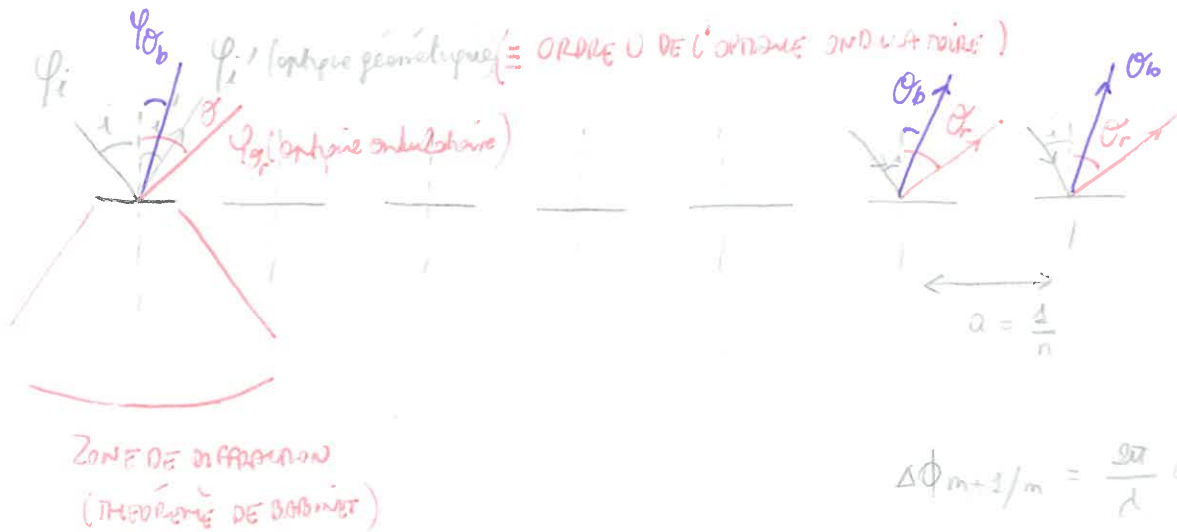 φθ_b
φ_i φ_i' (optique géométrique) (≡ ORDRE 0 DE L'OPTIQUE ONDULATOIRE)
i i θ
φθ_r (optique ondulatoire)
θ_b θ_r θ_b θ_r
a = 1/n
ZONE DE DIFFRACTION
(THÉORÈME DE BABINET)
ΔΦ m+1/m = 2π/λ